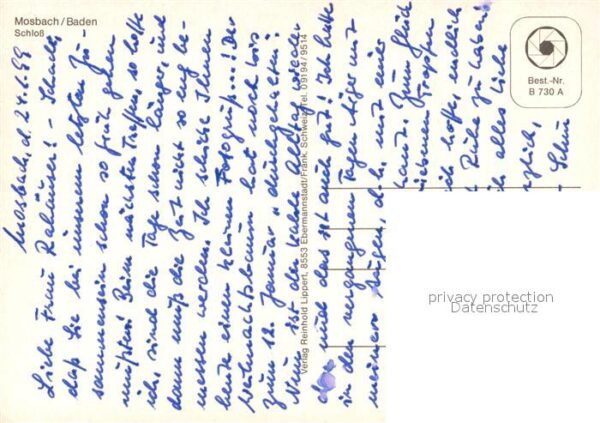 Mosbach/Baden
Schloß
Mosbach, d. 24.1.99
Liebe Frau Rahäuser! - Schade,
daß Sie bei unserem letzten Zu-
sammensein schon so früh gehen
mußten! Beim nächsten Treffen, so hoffe
ich, sind die Tage schon länger, und
dann muß die Zeit nicht so eng be-
messen werden. Ich schicke Ihnen
heute einen kleinen Fotogruß...! Der
Weihnachtsbaum hat noch bis
zum 12. Januar "durchgehalten".
Nun ist der wieder
und das ist auch gut! Ich hatte
in den vergangenen Tagen Ärger mit
meinen Augen, d.h. mit einer
Zum Glück
Tropfen
ich hoffe, endlich
Ruhe zu haben!
alles Liebe
Verlag Reinhold Lippert, 8553 Ebermannstadt/Fränk. Schweiz, Tel. 09194/9514
Best.-Nr.
B 730 A
privacy protection
Datenschutz